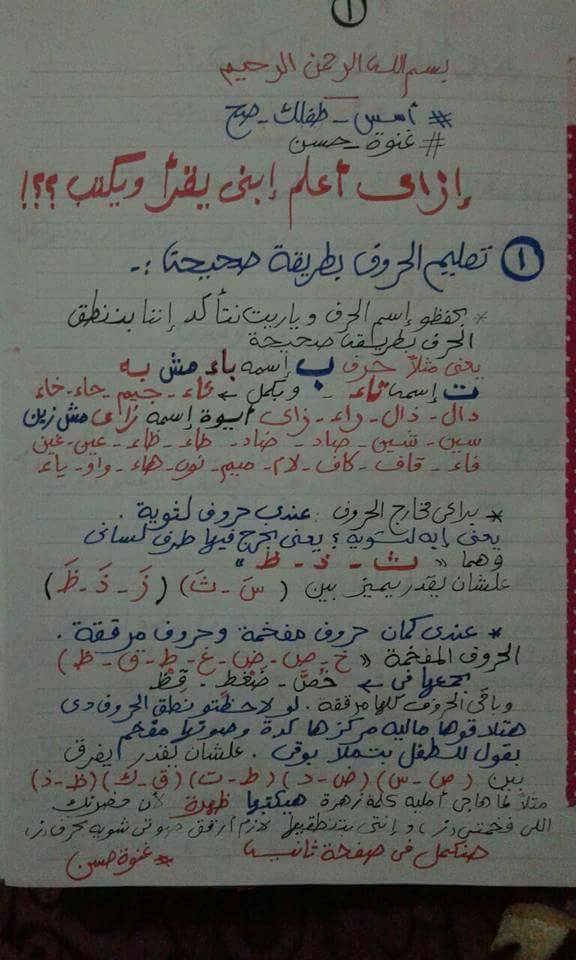 ١
بسم الله الرحمن الرحيم
# أسس - طفلك - صح
# غنوة - حسن
إزاى أعلم إبنى يقرأ ويكتب ؟؟!
١ تعليم الحروف بطريقة صحيحتا :-
* بحفظو إسم الحرف وياريت نتأكد إننا بننطق
الحرف بطريقتا صحيحة
يعنى مثلاً حرف ب إسمه باء مش به
ت إسمها تاء - ويكمل ← ثاء - جيم - حاء - خاء
دال - ذال - راء - زاى أيوة إسمه زاى مش زين
سين - شين - صاد - ضاد - طاء - ظاء - عين - غين
فاء - قاف - كاف - لام - ميم - نون - هاء - واو - ياء
* براعى مخارج الحروف : عندى حروف لثوية .
يعنى إيه لثوية ؟ يعنى بخرج فيها طرف لسانى
وهما " ث - ذ - ظ "
علشان يقدر يميز بين ( سَ - ثَ ) ( زَ - ذَ - ظَ )
* عندى كمان حروف مفخمة وحروف مرققة .
الحروف المفخمة " خ - ص - ض - غ - ط - ق - ظ )
بجمعها فى ← خُصَّ - ضَغْطٍ - قِظْ
وباقى الحروف كلها مرققة . لو لاحظتو نطق الحروف دى
هتلاقوها ماليه مركزها كدة وصوتها مفخم
بقول للطفل بتملا بوقى . علشان يقدر يفرق
بين ( ص - س ) ( ض - د ) ( ط - ت ) ( ق - ك ) ( ظ - ذ )
مثلاً لما هاجى أمليه كلمة زهرة هيكتبها ظهرة لأن حضرتك
اللى فخمتى ز ، وإنتى بتنطقيها لازم أرقق صوتى شويه بحرف ز ،
هنكمل فى صفحة ثانية # غنوة حسن